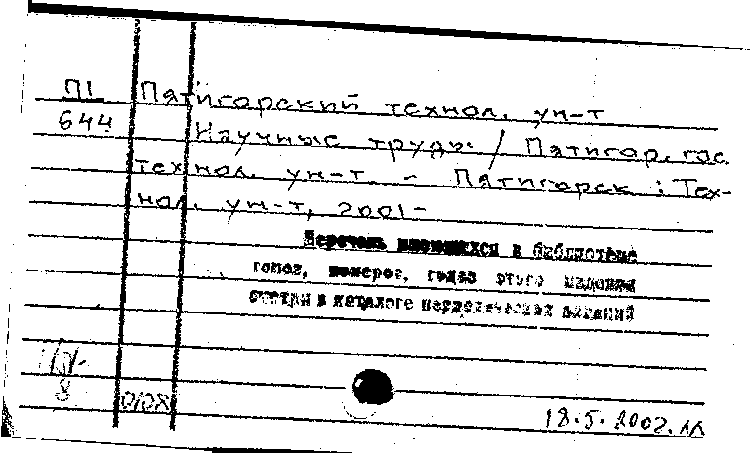 П1 Пятигорский технол. ун-т
644 Научные труды / Пятигор. гос.
технол. ун-т. – Пятигорск : Тех-
нол. ун-т, 2001–
Перечень имеющихся в библиотеке
томов, номеров, годов этого издания
смотри в каталоге периодических изданий
8
18.5.2002.